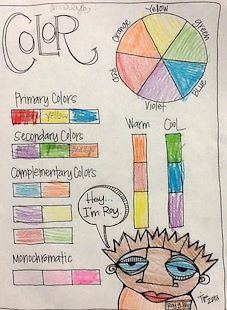 COLOR
Yellow
Orange
green
RED
Blue
Violet
Primary Colors
Yellow
Secondary Colors
Complementary Colors
Monochromatic
Warm
Cool
Hey...
I'm Roy.